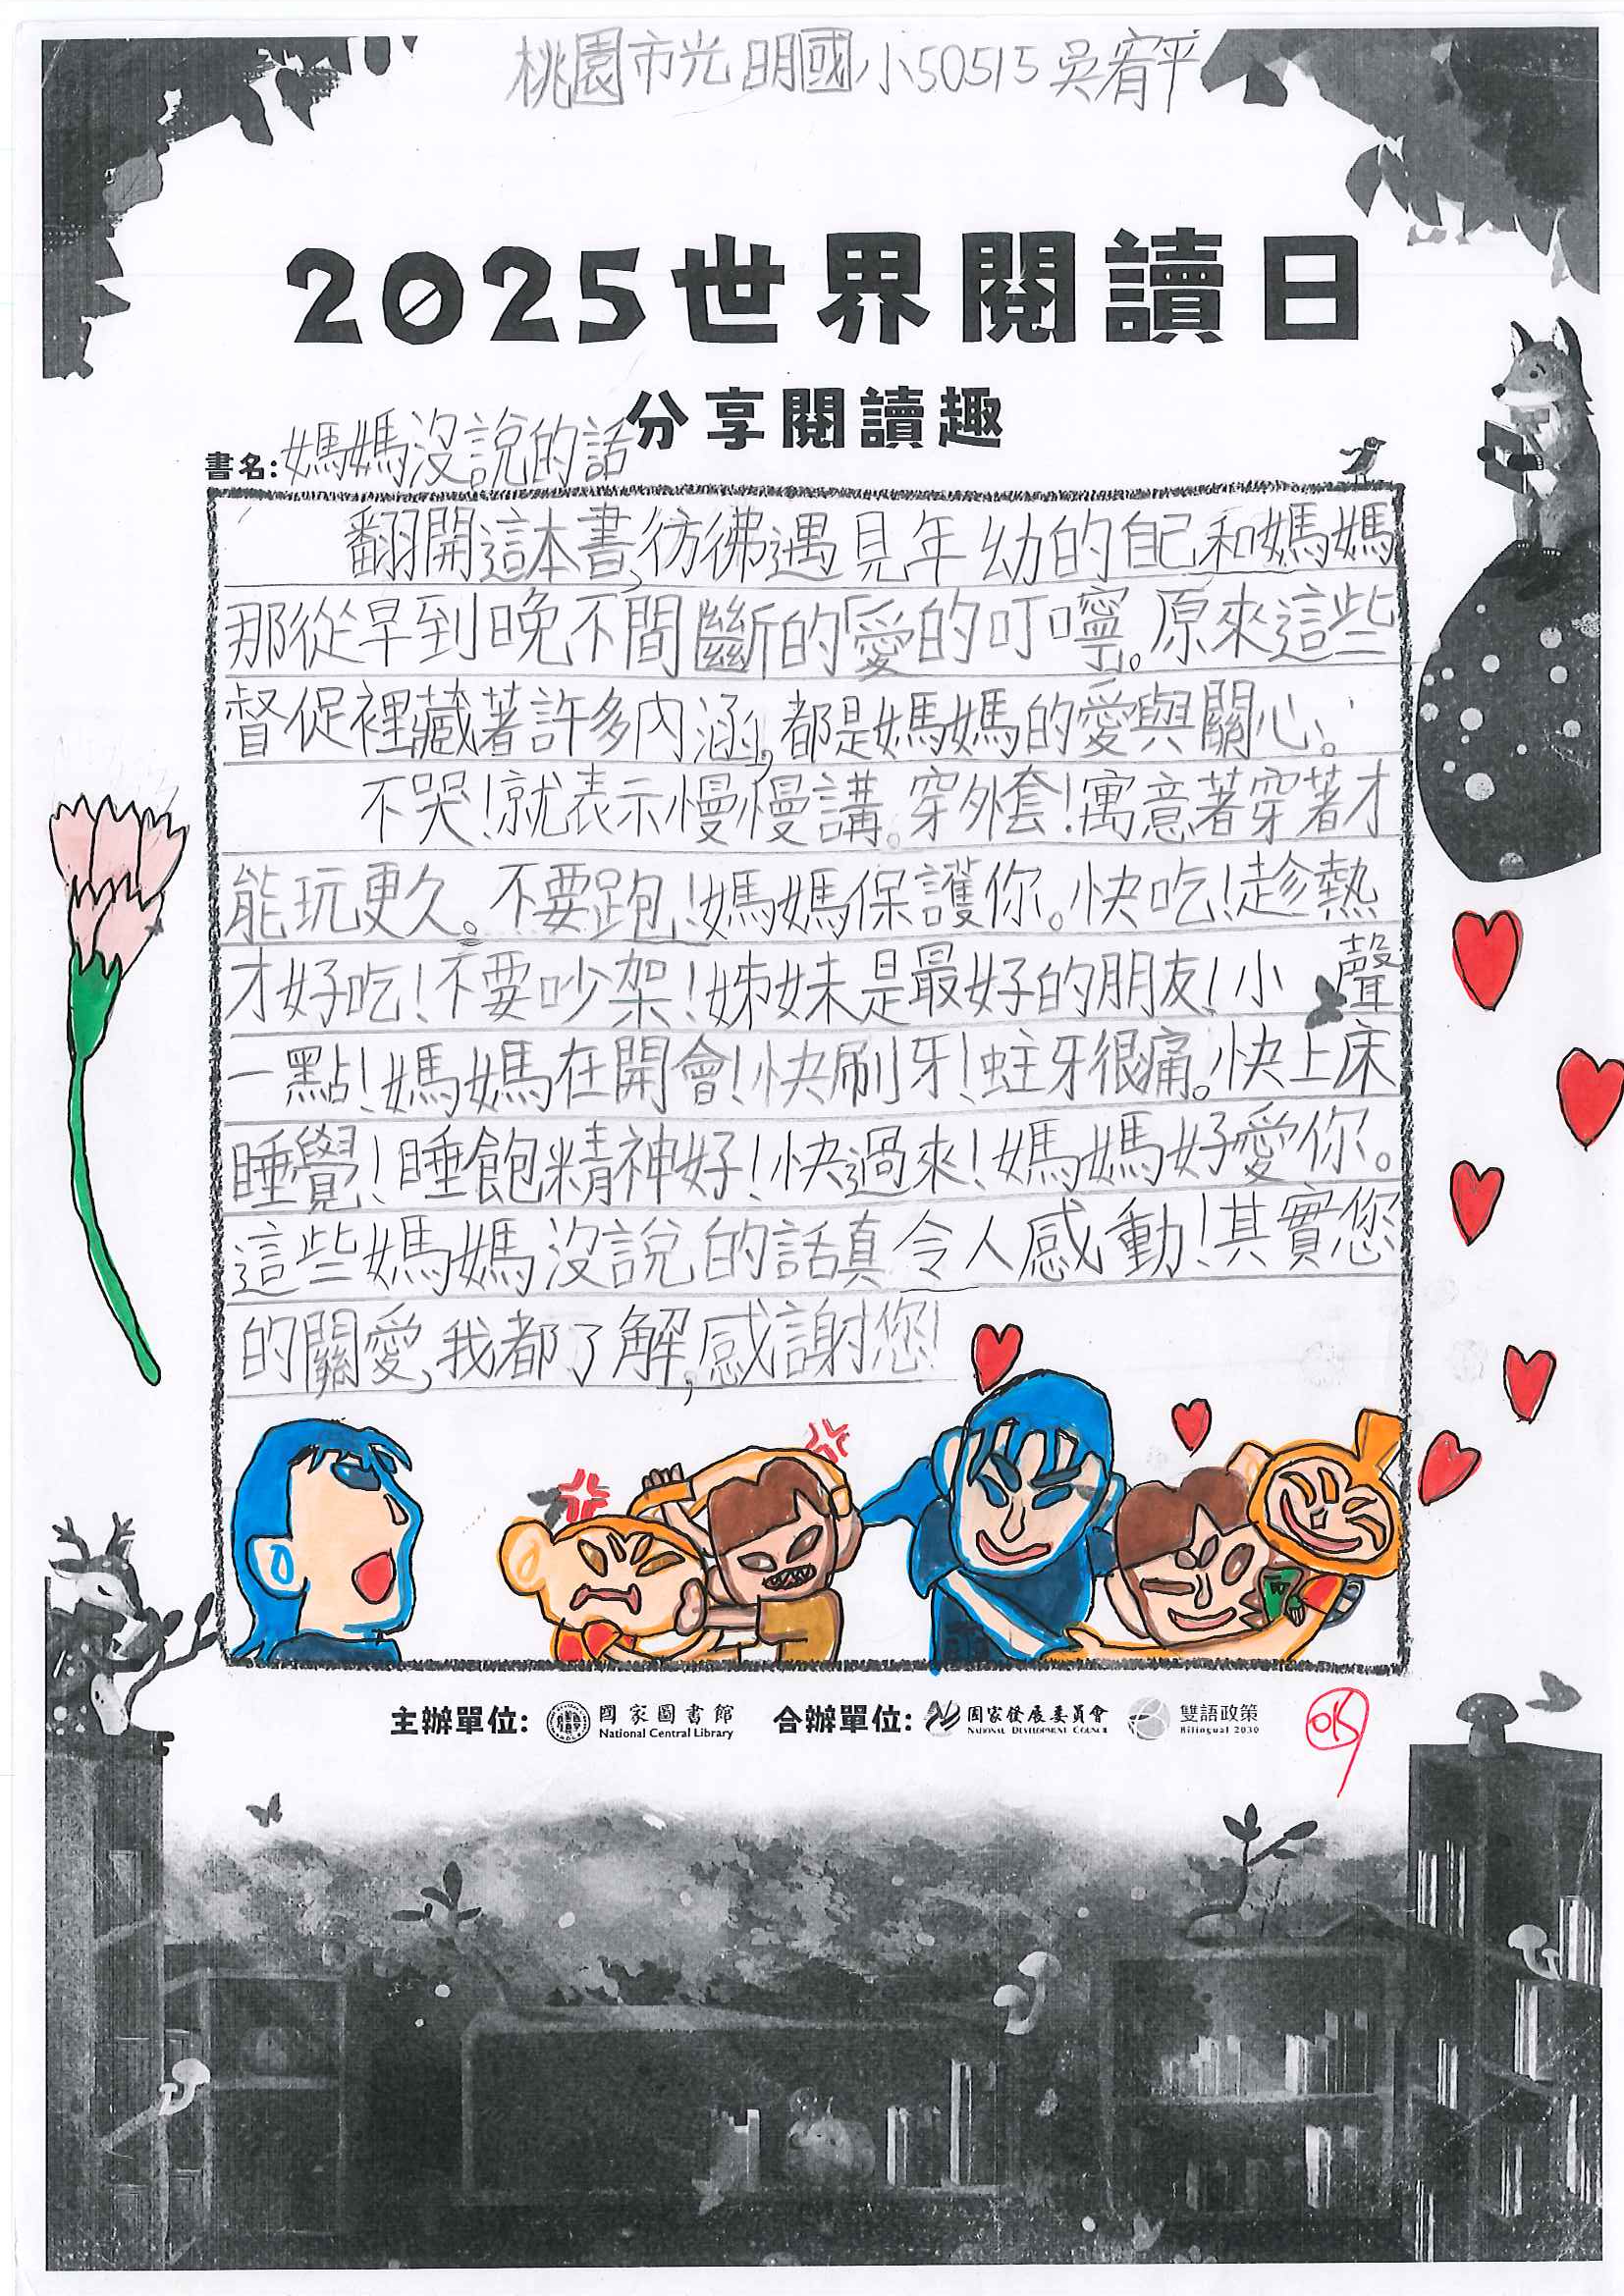 桃園市光明國小50515吳宥平
2025世界閱讀日
分享閱讀趣
書名:媽媽沒說的話
翻開這本書,彷彿遇見年幼的自己和媽媽
那從早到晚不間斷的「愛的叮嚀」。原來這些
督促裡藏著許多內涵,都是媽媽的愛與關心。
不哭!就表示慢慢講。穿外套!寓意著穿著才
能玩更久。不要跑!媽媽保護你。快吃!趁熱
才好吃!不要吵架!姊妹是最好的朋友!小聲
一點!媽媽在開會!快刷牙!蛀牙很痛。快上床
睡覺!睡飽精神好!快過來!媽媽好愛你。
這些媽媽沒說的話真令人感動!其實您
的關愛,我都了解,感謝您!
主辦單位: 國家圖書館 National Central Library 合辦單位: 國家發展委員會 National Development Council 雙語政策 Bilingual 2030
OK